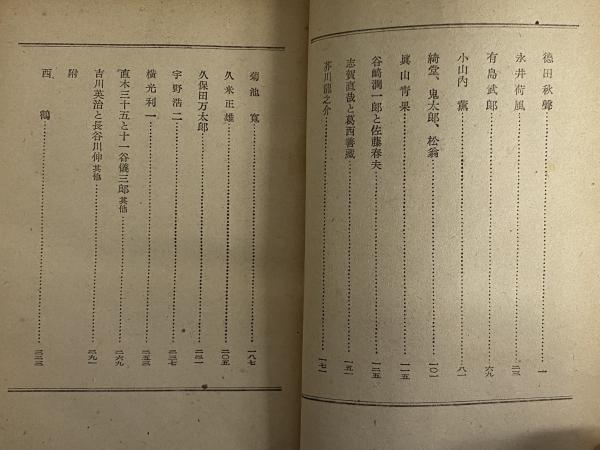 德田秋聲……一
永井荷風……二三
有島武郎……六九
小山內薰……八一
綺堂、鬼太郎、松翁……一〇一
眞山靑果……一一五
谷崎潤一郎と佐藤春夫……一二五
志賀直哉と葛西善藏……一五一
芥川龍之介……一七一
菊池寬……一八七
久米正雄……二〇五
久保田万太郎……二二一
宇野浩二……二三七
橫光利一……二五三
直木三十五と十一谷儀三郎其他……二六九
吉川英治と長谷川伸其他……二九一
附
西鶴……三二三